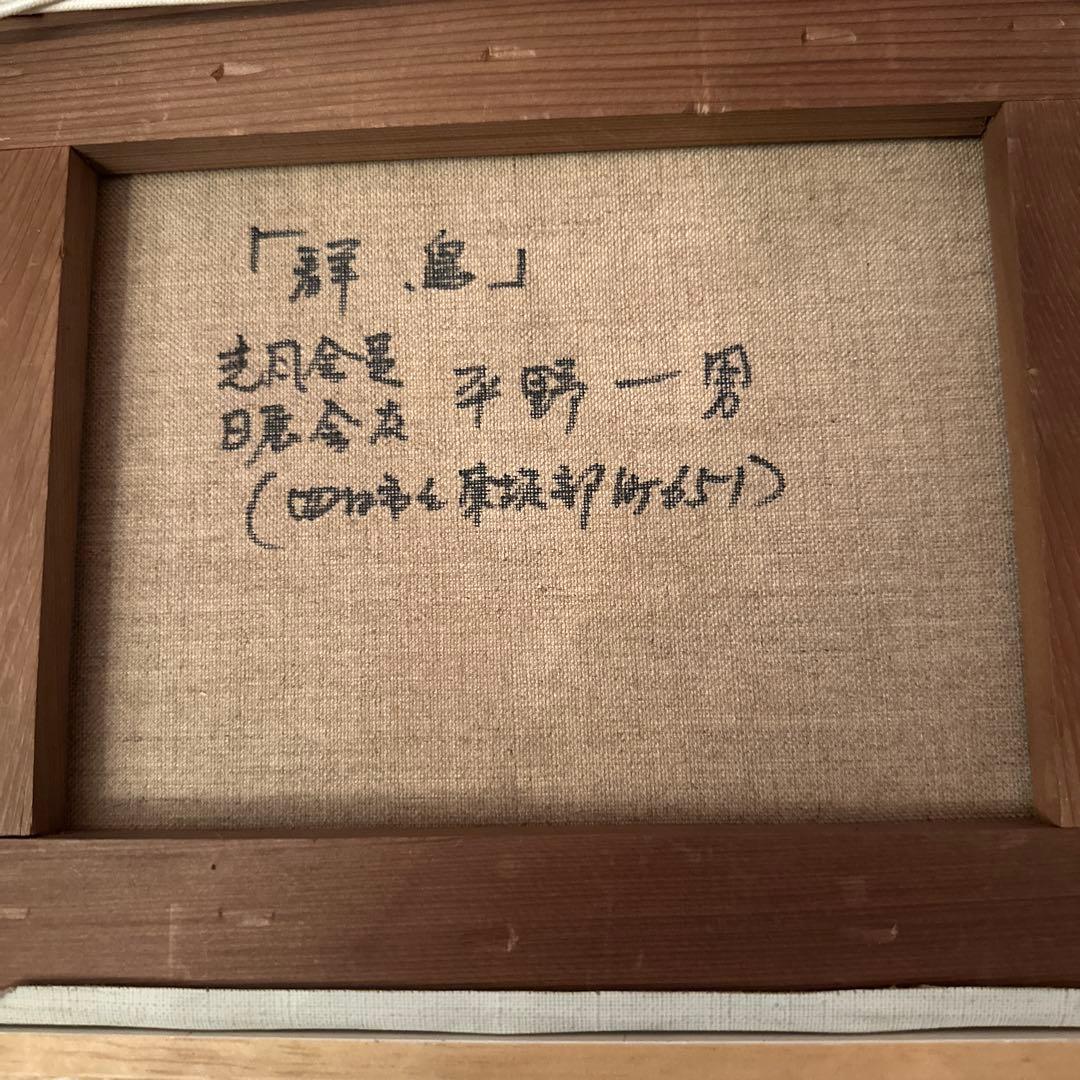 「群鳥」
光風会員
日展会友
平野一男
(四日市市東坂部町651)